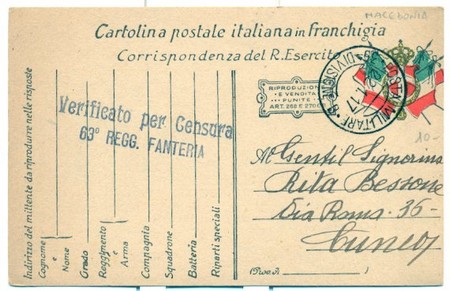 MACEDONIA
Cartolina postale italiana in franchigia
Corrispondenza del R. Esercito
POSTA MILITARE
DIVISIONE
RIPRODUZIONE
E VENDITA
PUNITE
ART. 268 E 270 C.P.
Verificato per Censura
63° REGG. FANTERIA
10-
Al Gentil Signorina
Rita Bessone
Via Roma 36-
Cuneo
(Prov. di )
Indirizzo del mittente da riprodurre nelle risposte
Cognome e Nome
Grado
Reggimento e Arma
Compagnia
Squadrone
Batteria
Riparti speciali